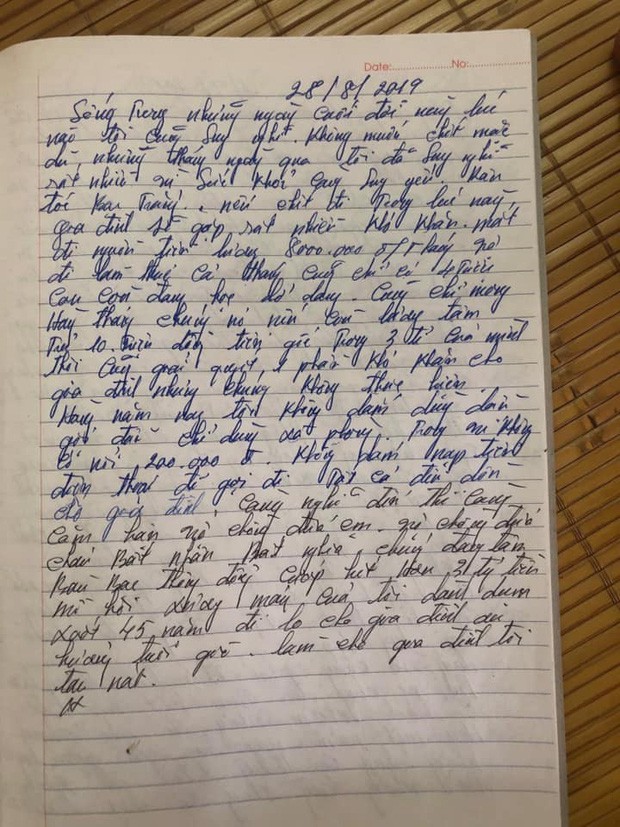 Date: No:
28/8/2019
Sống Trong những ngày cuối đời này lúc
ngộ tôi cũng suy nghĩ. Không muốn chết mặc
dù những tháng ngày qua tôi đã suy nghĩ
rất nhiều vì sức khỏe cũng suy yếu
tôi nếu chết đi Trong lúc này
gia đình sẽ gặp rất nhiều khó khăn. mất
đi nguồn tiền lương 8000.000 đ/Tháng
đi làm thuê cả tháng cũng chỉ có 4 Triệu
con còn đang học dở dang. Cũng chỉ mong
Hàng tháng chúng nó nếu còn lương tâm
Trả 10 Triệu đồng tiền gửi Trong 3 tỉ của mình
Thôi cũng giải quyết 1 phần khó khăn cho
gia đình nhưng chúng không thực hiện.
Hàng năm nay tôi không dám dùng dầu
gội đầu chỉ dùng xà phòng. Trong ví không
có nổi 200.000 đ không dám nạp tiền
điện thoại để gọi đi Tất cả để dồn
cho gia đình. Càng nghĩ đến thì càng
căm hận vợ chồng đứa em. vợ chồng đứa
cháu Bất nhân Bất nghĩa. chúng đang tâm
Bàn Bạc Thông đồng cướp hết Hơn 3 tỷ tiền
mồ hôi xương máu của tôi dành dụm
suốt 45 năm để lo cho gia đình
hưởng tuổi già. làm cho gia đình tôi
tan nát.